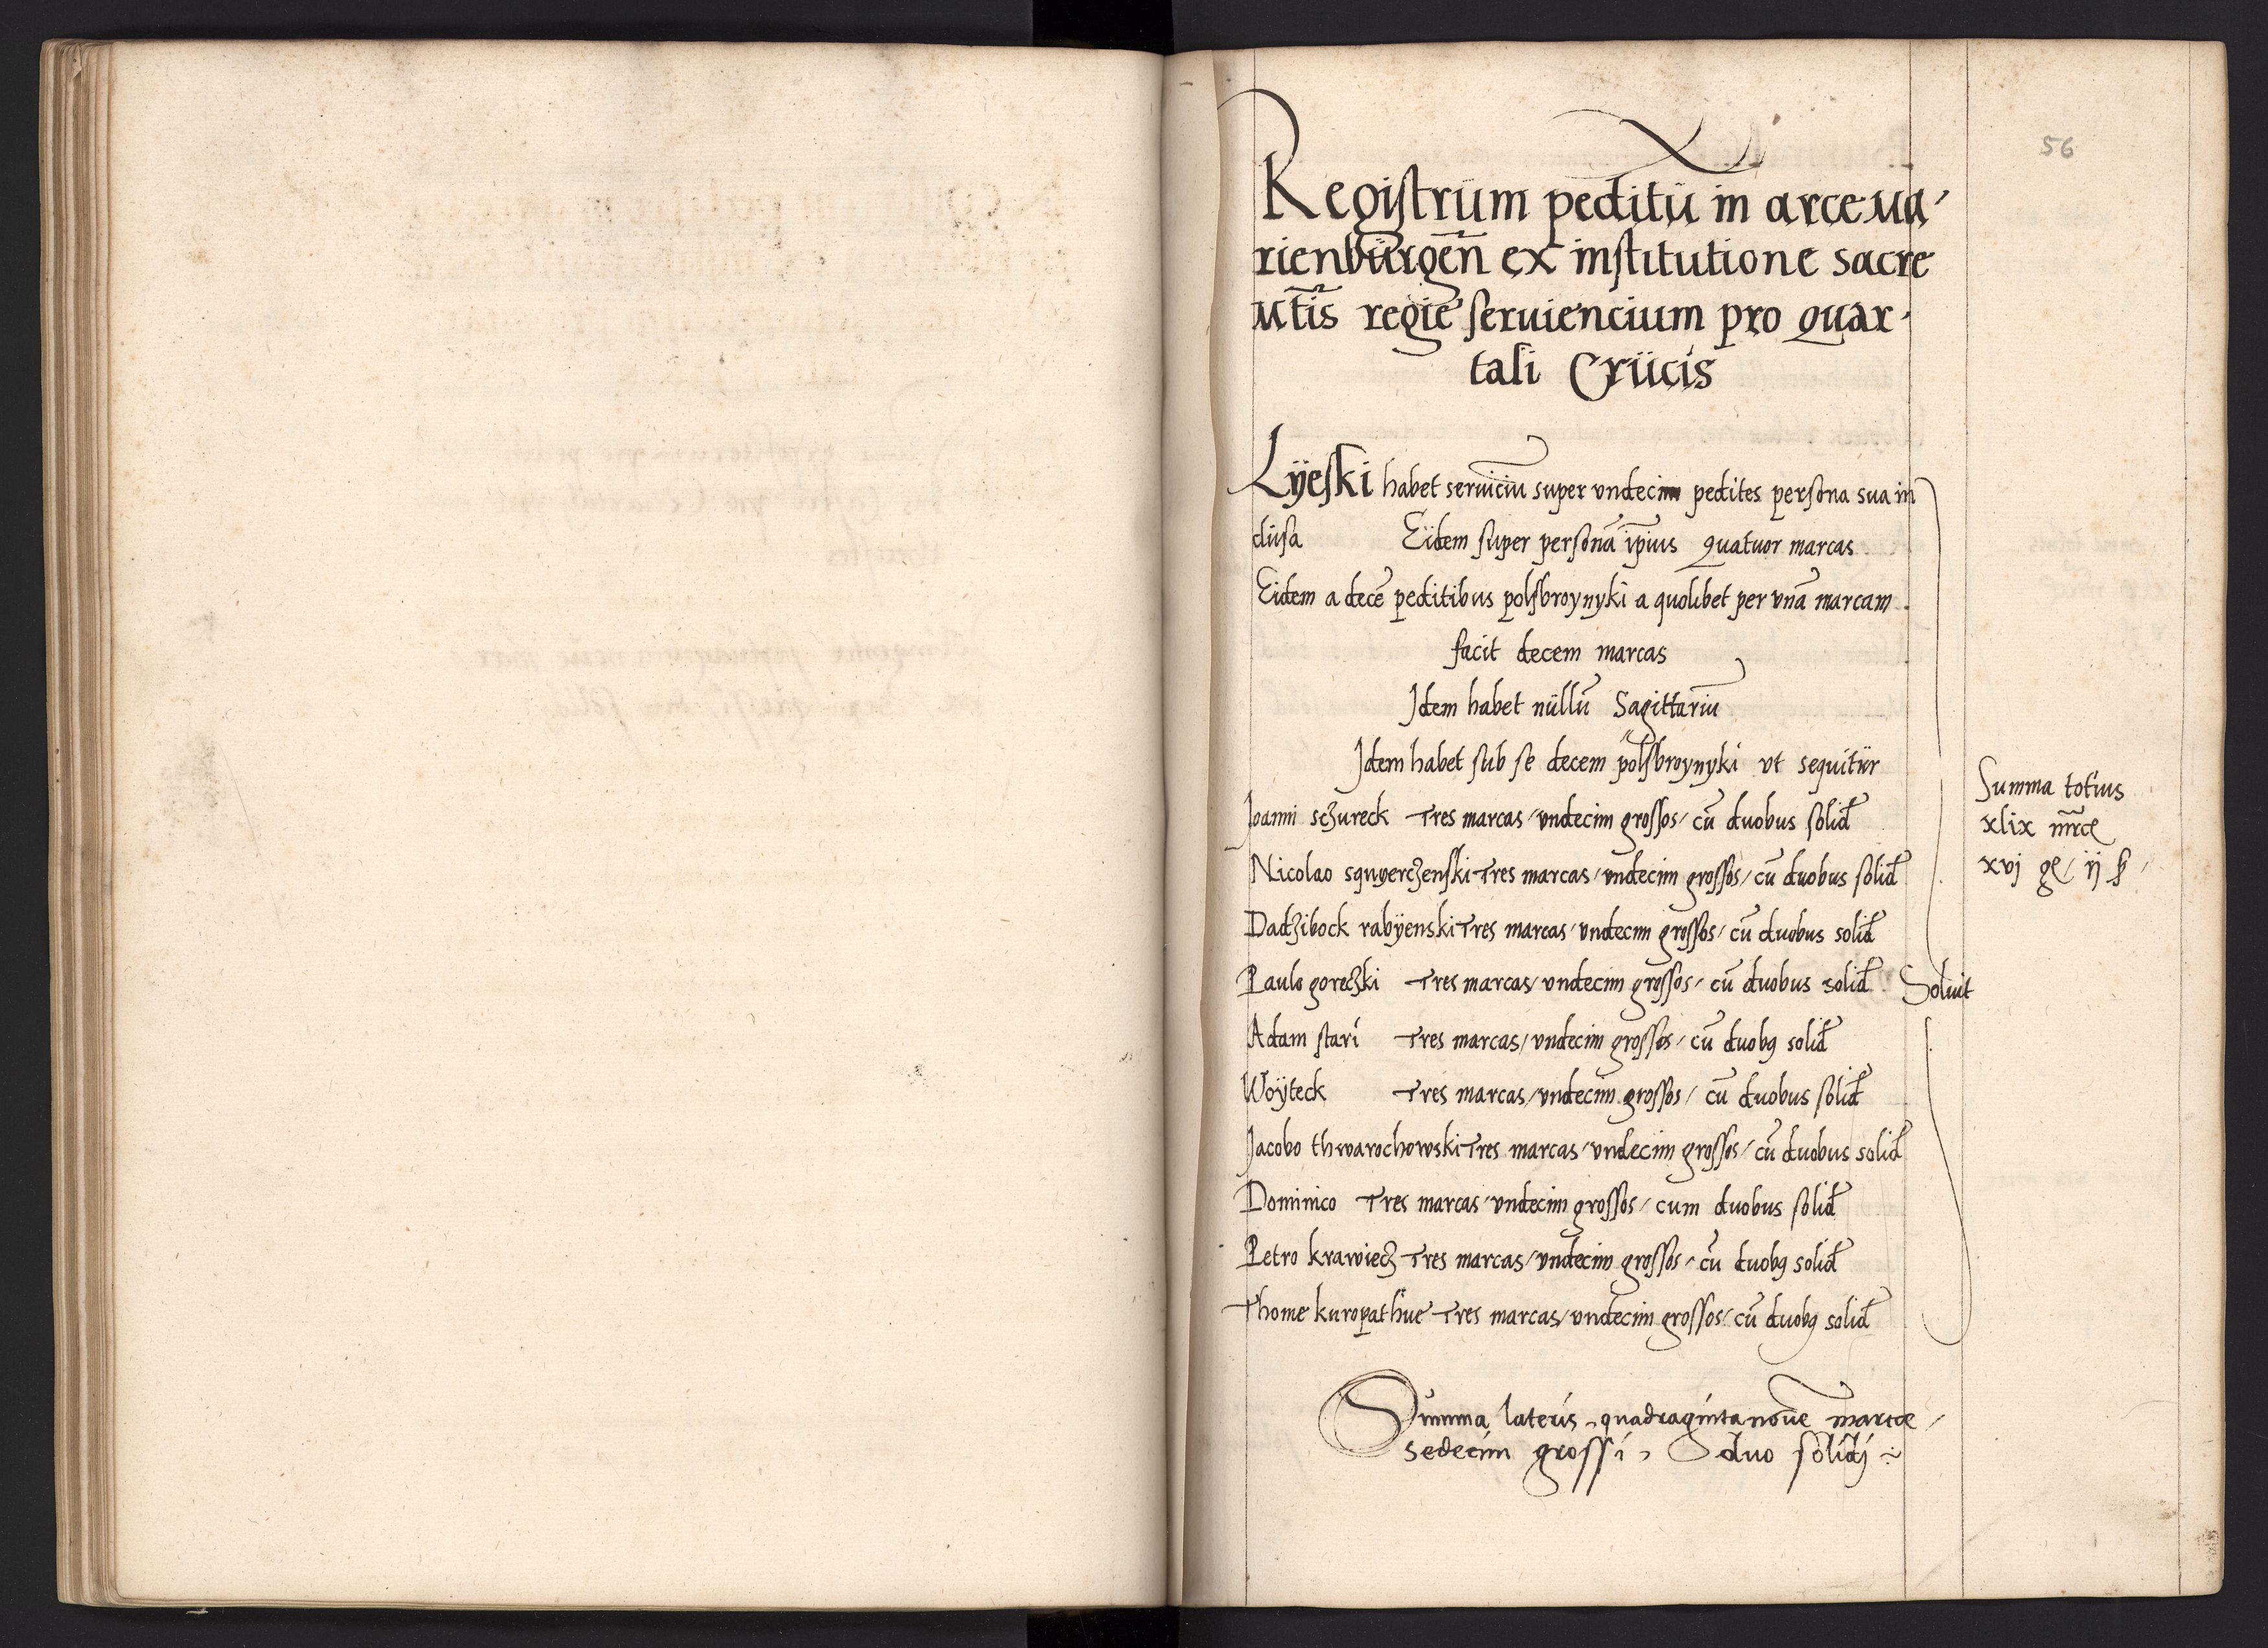 56
Registrum peditū in arce Ma-
rienburgen̄ ex institutione sacre
Mt̄is regie seruiencium pro quar-
tali Crucis
Lÿeski habet seruiciū super vndecim pedites persona sua in
clusa Eidem super personā ip̄ius quatuor marcas
Eidem a decē peditibus polsbroynyki a quolibet per vnā marcam
facit decem marcas
Idem habet nullū Sagittariū
Idem habet sub se decem polsbroynyki vt sequitur
Joanni sczureck Tres marcas / vndecim grossos / cū duobus solid
Nicolao squyerczenski Tres marcas / vndecim grossos / cū duobus solid
Dadzibock rabÿenski Tres marcas / vndecim grossos / cū duobus solid
Paulo goreczki Tres marcas / vndecim grossos / cū duobus solid
Adam stari Tres marcas / vndecim grossos / cū duobꝰ solid
Woÿteck Tres marcas / vndecim grossos / cū duobus solid
Jacobo thwarochowski Tres marcas / vndecim grossos / cū duobus solid
Dominico Tres marcas / vndecim grossos / cum duobus solid
Petro krawiecz Tres marcas / vndecim grossos / cū duobꝰ solid
Thome kuropathue Tres marcas / vndecim grossos / cū duobꝰ solid
Summa lateris quadraginta nouē marce /
sedecim grossi, duo solidj
Summa totius
xlix mrce
xvj g / ij ß
Soluit